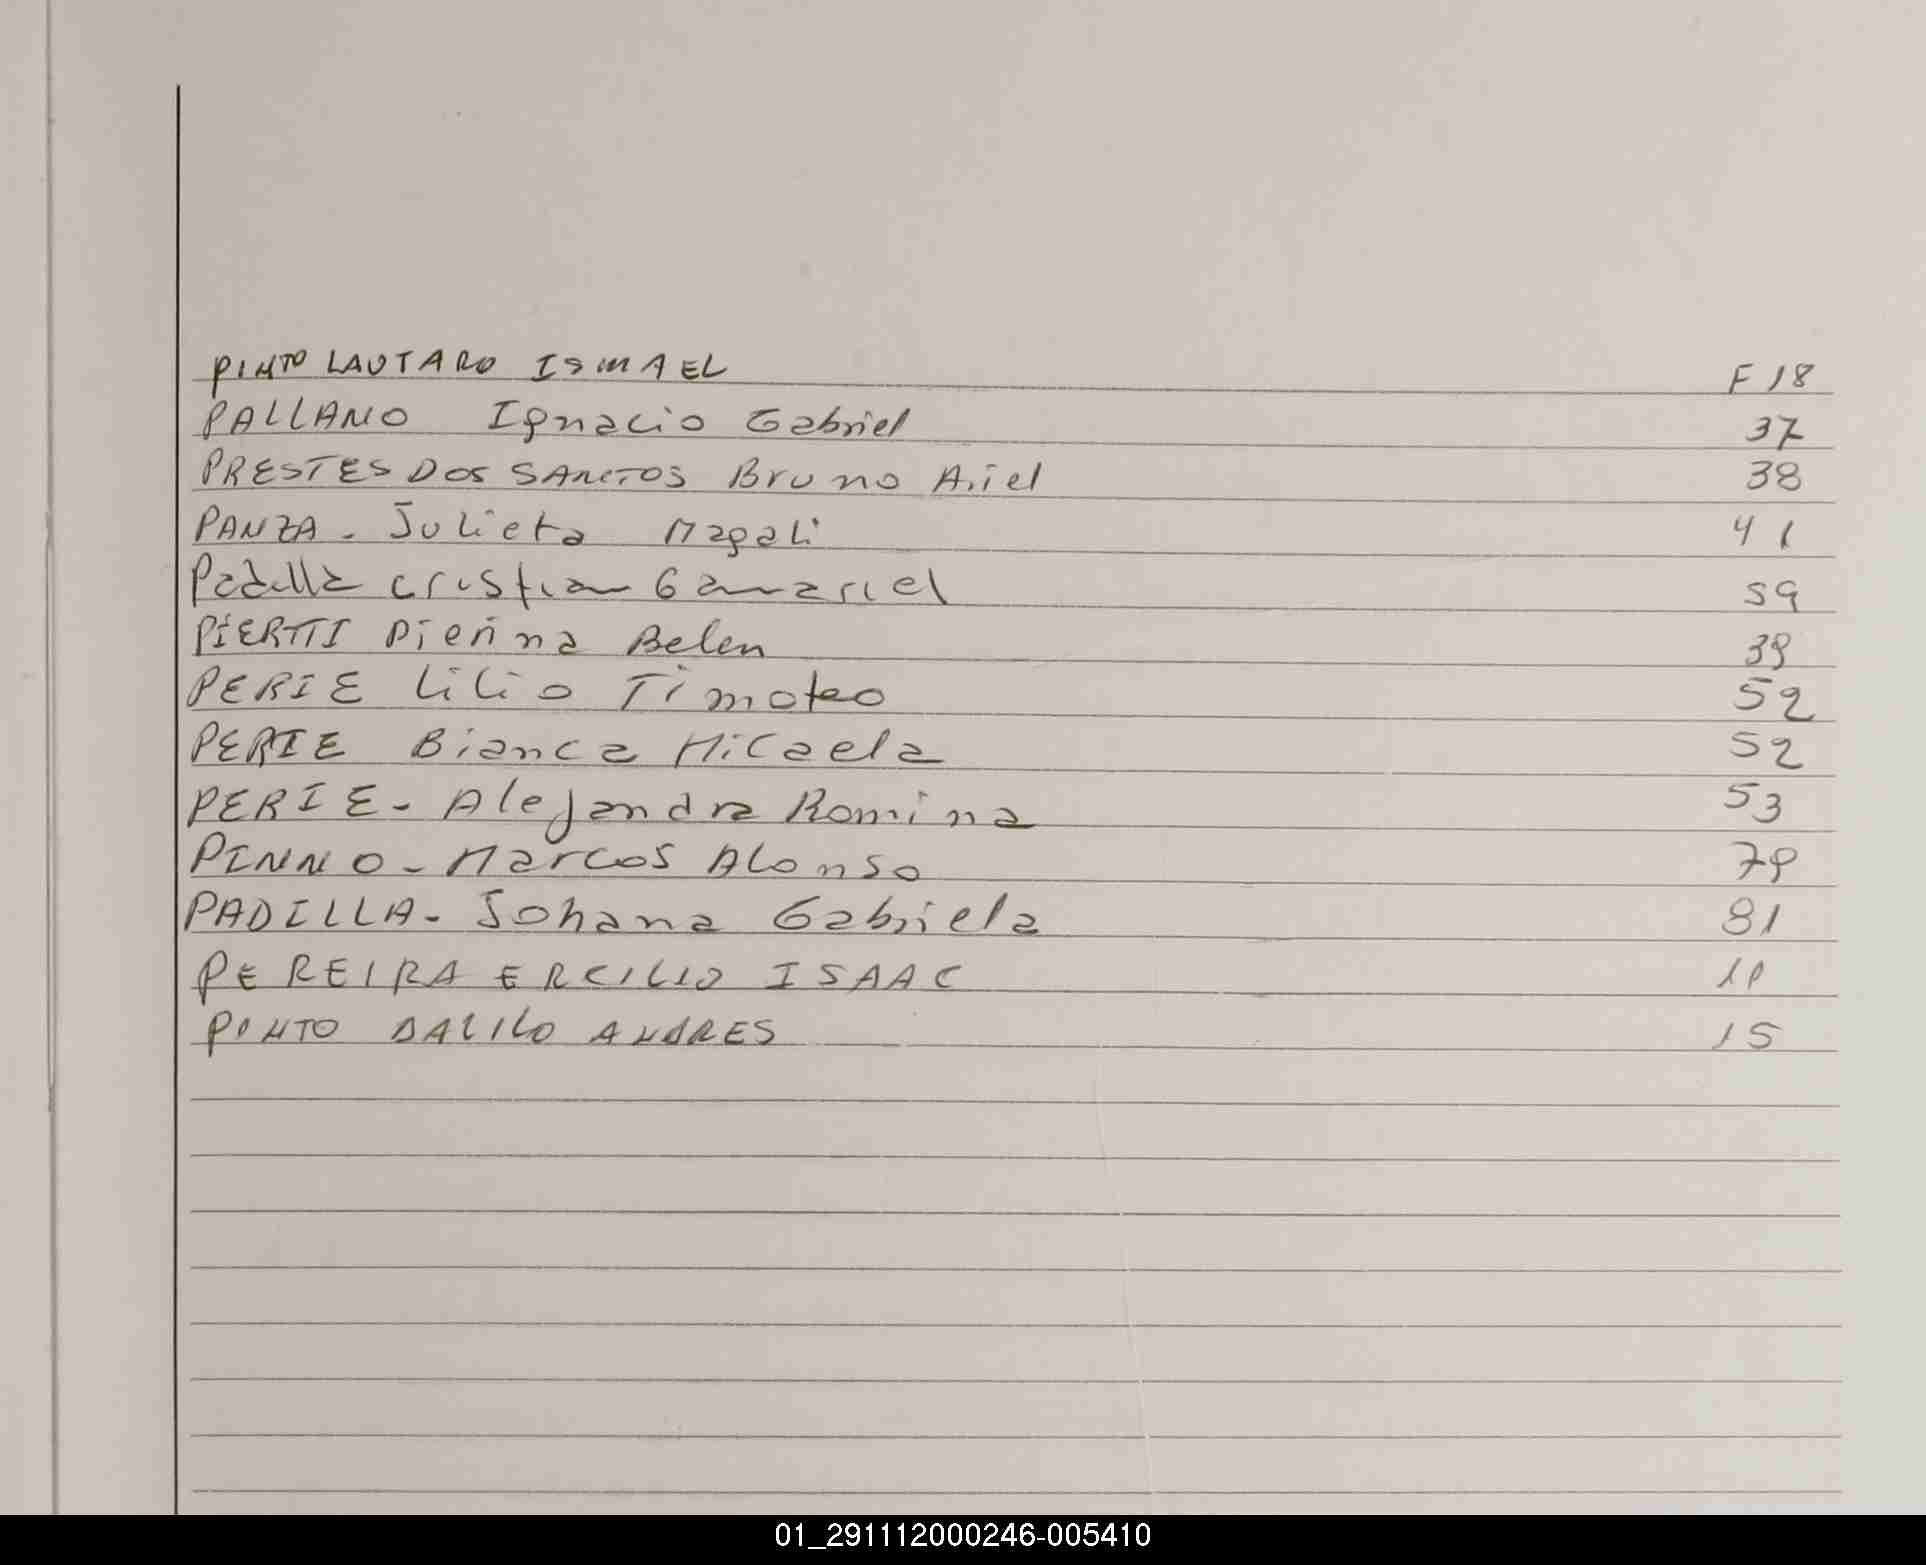 PINTO LAUTARO ISMAEL F 18
PALLANO Ignacio Gabriel 37
PRESTES DOS SANTOS Bruno Ariel 38
PANZA - Julieta Magali 41
Padilla Cristian Gamariel 59
PIERTTI Pierina Belen 39
PERIE Lilio Timoteo 52
PERIE Bianca Micaela 52
PERIE - Alejandra Romina 53
PINNO - Marcos Alonso 79
PADILLA - Johana Gabriela 81
PEREIRA ERCILIO ISAAC
PINTO DALILO ANDRES 15
01_291112000246-005410